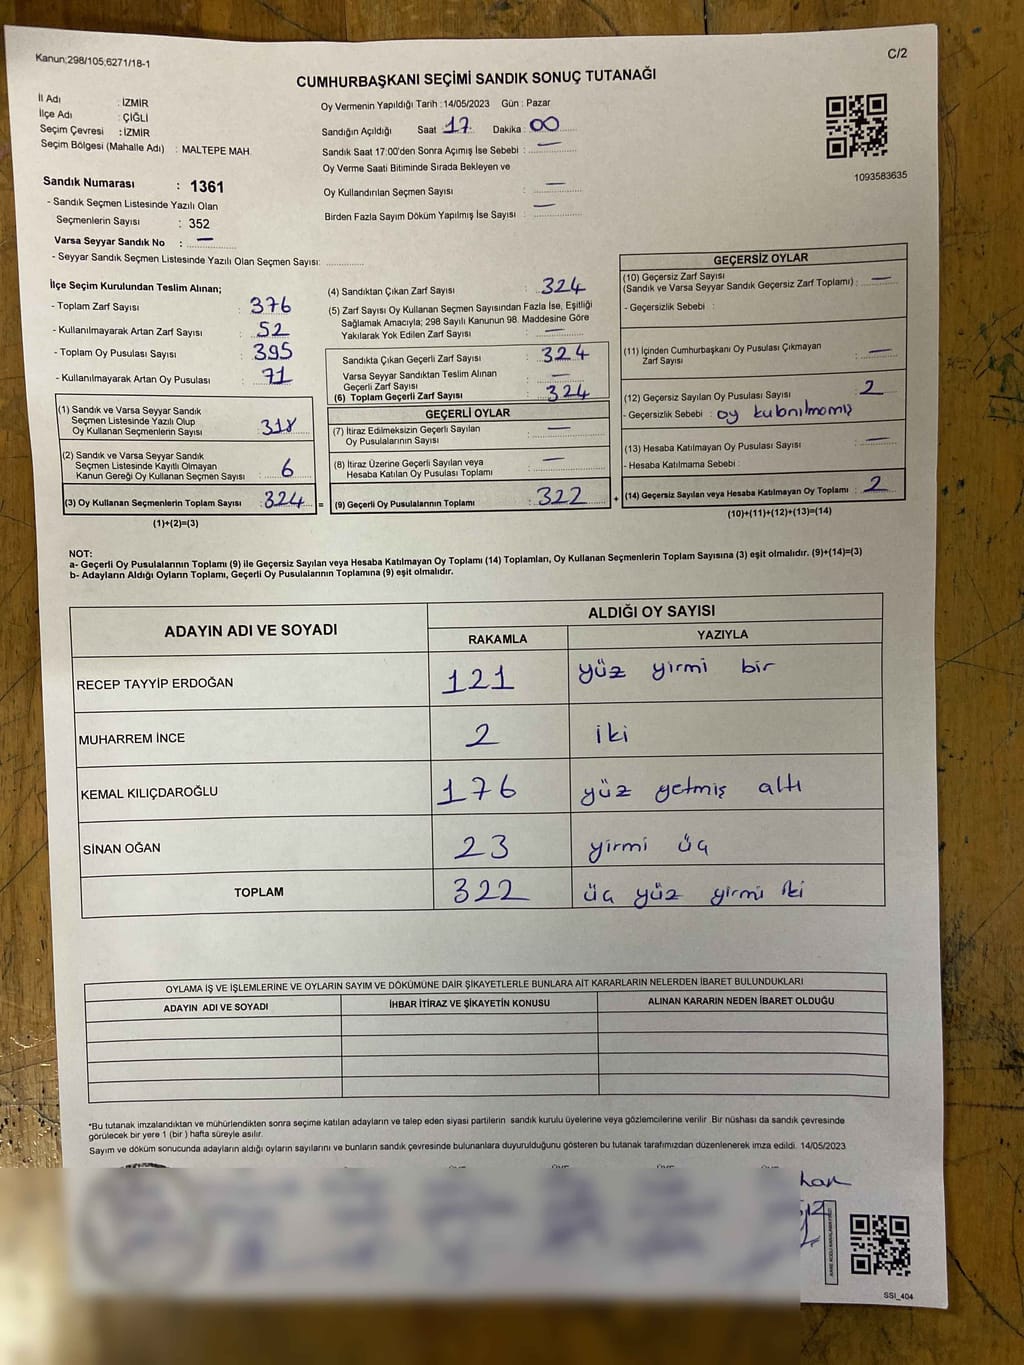 Kanun;298/105;6271/18-1
C/2
CUMHURBAŞKANI SEÇİMİ SANDIK SONUÇ TUTANAĞI
İl Adı : İZMİR
İlçe Adı : ÇİĞLİ
Seçim Çevresi : İZMİR
Seçim Bölgesi (Mahalle Adı) : MALTEPE MAH.
Sandık Numarası : 1361
- Sandık Seçmen Listesinde Yazılı Olan
Seçmenlerin Sayısı : 352
Varsa Seyyar Sandık No : —
- Seyyar Sandık Seçmen Listesinde Yazılı Olan Seçmen Sayısı:
Oy Vermenin Yapıldığı Tarih :14/05/2023 Gün : Pazar
Sandığın Açıldığı Saat 17 Dakika : 00
Sandık Saat 17:00'den Sonra Açımış İse Sebebi : —
Oy Verme Saati Bitiminde Sırada Bekleyen ve
Oy Kullandırılan Seçmen Sayısı : —
Birden Fazla Sayım Döküm Yapılmış İse Sayısı : —
1093583635
İlçe Seçim Kurulundan Teslim Alınan;
- Toplam Zarf Sayısı : 376
- Kullanılmayarak Artan Zarf Sayısı : 52
- Toplam Oy Pusulası Sayısı : 395
- Kullanılmayarak Artan Oy Pusulası : 71
(1) Sandık ve Varsa Seyyar Sandık
Seçmen Listesinde Yazılı Olup
Oy Kullanan Seçmenlerin Sayısı : 318
(2) Sandık ve Varsa Seyyar Sandık
Seçmen Listesinde Kayıtlı Olmayan
Kanun Gereği Oy Kullanan Seçmen Sayısı : 6
(3) Oy Kullanan Seçmenlerin Toplam Sayısı : 324 =
(1)+(2)=(3)
(4) Sandıktan Çıkan Zarf Sayısı : 324
(5) Zarf Sayısı Oy Kullanan Seçmen Sayısından Fazla İse, Eşitliği
Sağlamak Amacıyla; 298 Sayılı Kanunun 98. Maddesine Göre
Yakılarak Yok Edilen Zarf Sayısı : —
Sandıkta Çıkan Geçerli Zarf Sayısı : 324
Varsa Seyyar Sandıktan Teslim Alınan
Geçerli Zarf Sayısı : —
(6) Toplam Geçerli Zarf Sayısı : 324
GEÇERLİ OYLAR
(7) İtiraz Edilmeksizin Geçerli Sayılan
Oy Pusulalarının Sayısı : —
(8) İtiraz Üzerine Geçerli Sayılan veya
Hesaba Katılan Oy Pusulası Toplamı : —
(9) Geçerli Oy Pusulalarının Toplamı : 322 +
GEÇERSİZ OYLAR
(10) Geçersiz Zarf Sayısı
(Sandık ve Varsa Seyyar Sandık Geçersiz Zarf Toplamı) : —
- Geçersizlik Sebebi :
(11) İçinden Cumhurbaşkanı Oy Pusulası Çıkmayan
Zarf Sayısı : —
(12) Geçersiz Sayılan Oy Pusulası Sayısı : 2
- Geçersizlik Sebebi : oy kullanılmamış
(13) Hesaba Katılmayan Oy Pusulası Sayısı : —
- Hesaba Katılmama Sebebi :
(14) Geçersiz Sayılan veya Hesaba Katılmayan Oy Toplamı : 2
(10)+(11)+(12)+(13)=(14)
NOT:
a- Geçerli Oy Pusulalarının Toplamı (9) ile Geçersiz Sayılan veya Hesaba Katılmayan Oy Toplamı (14) Toplamları, Oy Kullanan Seçmenlerin Toplam Sayısına (3) eşit olmalıdır. (9)+(14)=(3)
b- Adayların Aldığı Oyların Toplamı, Geçerli Oy Pusulalarının Toplamına (9) eşit olmalıdır.
ADAYIN ADI VE SOYADI
ALDIĞI OY SAYISI
RAKAMLA YAZIYLA
RECEP TAYYİP ERDOĞAN 121 yüz yirmi bir
MUHARREM İNCE 2 iki
KEMAL KILIÇDAROĞLU 176 yüz yetmiş altı
SİNAN OĞAN 23 yirmi üç
TOPLAM 322 üç yüz yirmi iki
OYLAMA İŞ VE İŞLEMLERİNE VE OYLARIN SAYIM VE DÖKÜMÜNE DAİR ŞİKAYETLERLE BUNLARA AİT KARARLARIN NELERDEN İBARET BULUNDUKLARI
ADAYIN ADI VE SOYADI İHBAR İTİRAZ VE ŞİKAYETİN KONUSU ALINAN KARARIN NEDEN İBARET OLDUĞU
*Bu tutanak imzalandıktan ve mühürlendikten sonra seçime katılan adayların ve talep eden siyasi partilerin sandık kurulu üyelerine veya gözlemcilerine verilir. Bir nüshası da sandık çevresinde
görülecek bir yere 1 (bir) hafta süreyle asılır.
Sayım ve döküm sonucunda adayların aldığı oyların sayılarını ve bunların sandık çevresinde bulunanlara duyurulduğunu gösteren bu tutanak tarafımızdan düzenlenerek imza edildi. 14/05/2023
SSI_404